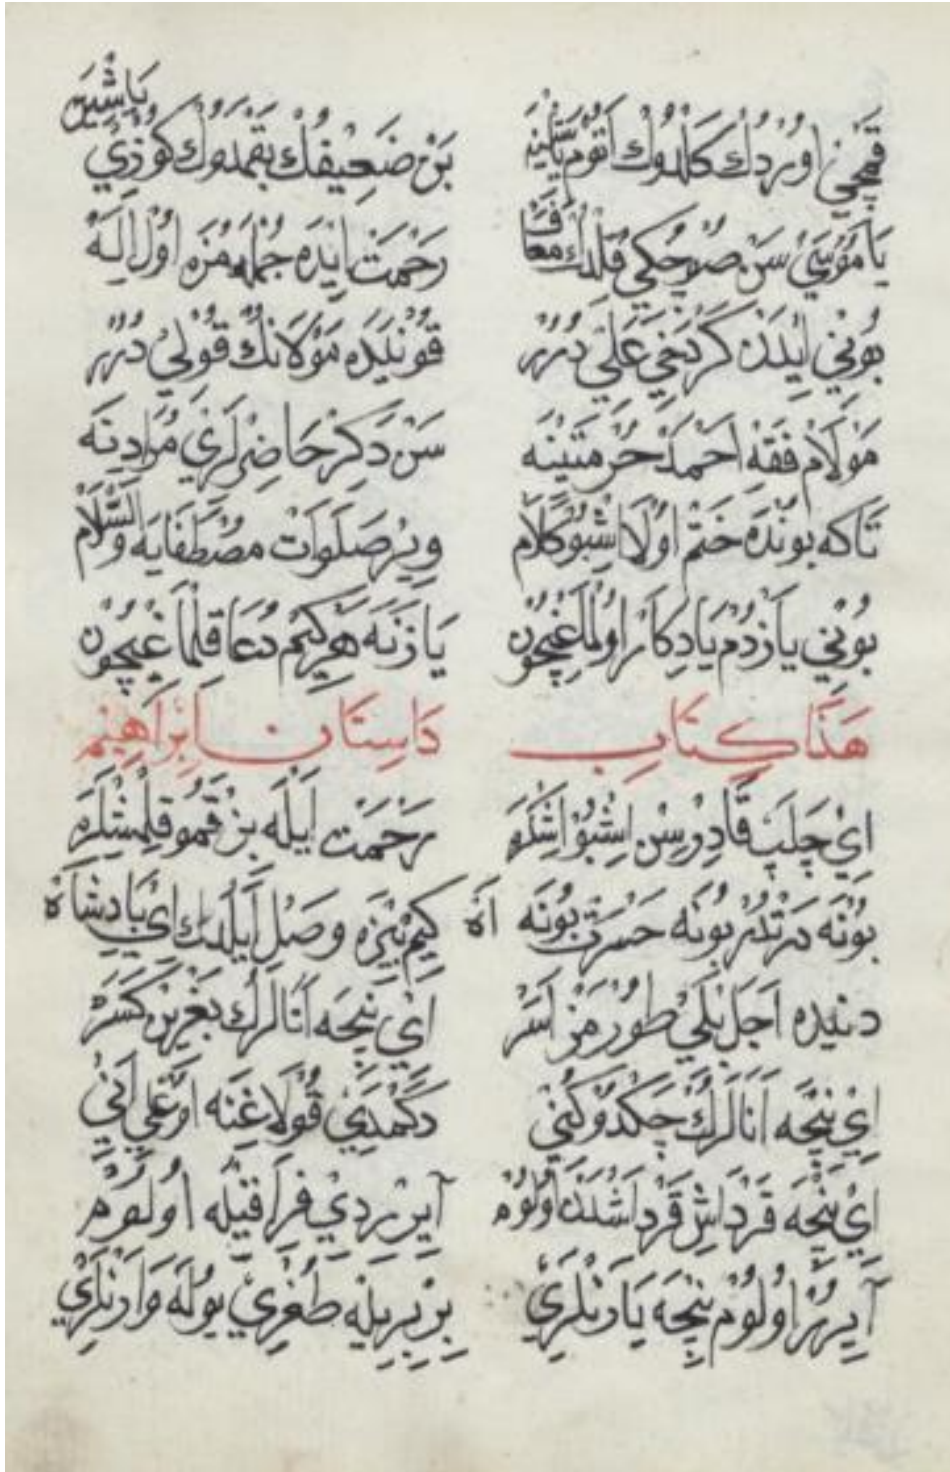 قچن اوردك كلدوك اتوم ياننه بن ضعيفك بقمدوك كوزي ياشينه
يا موسي سن صوچكي قلدك معاف رحمت ايده جمله مزه اول اله
بوني ايلدن كر دخي علي درر قونيده مولانك قولي درر
مولام فقه احمد حرمتينه سن دكر حاضرلري مرادنه
تاكه بونده ختم اولا اشبو كلام وير صلوات مصطفايه والسلام
بوني يازدم يادكار اولماغيچون يازنه هركيم دعا قلماغيچون
هذا كتاب داستان ابراهيم
اي چلب قادرسن اشبو اشلره رحمت ايله بز قمو قلمشلره
بونه درتدر بونه حسرت بونه اه كيم بيزه وصل ايلدك اي پادشاه
دنيده اجل يلي طورمز اسر اي نيجه اتالرك بغرين كسر
اي نيجه انالرك چكدوكني دكمدي قولاغنه اوغلي اني
اي نيجه قرداش قرداشدن اولوم آييردي فراقيله اولوم
آييرر اولوم نيجه يارنلري بربريله طغري يوله وارنلري